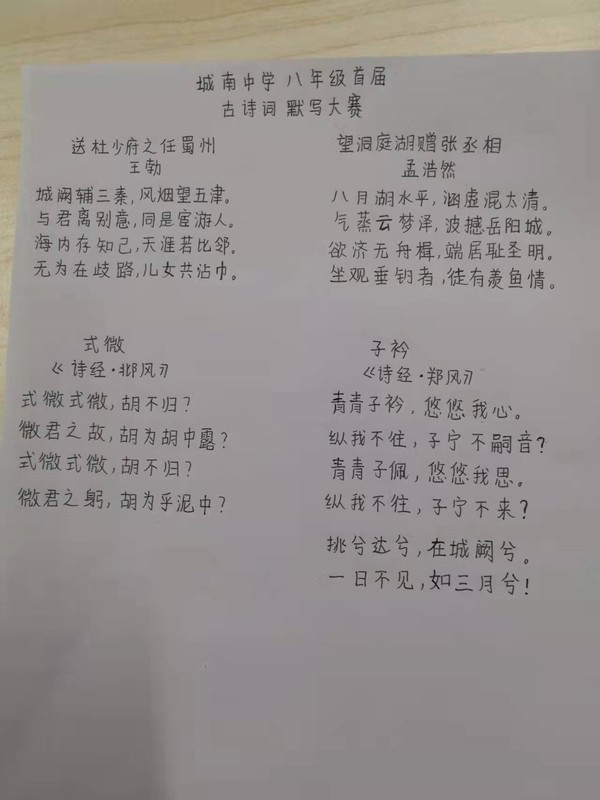 城南中学八年级首届
古诗词默写大赛
送杜少府之任蜀州
王勃
城阙辅三秦,风烟望五津。
与君离别意,同是宦游人。
海内存知己,天涯若比邻。
无为在歧路,儿女共沾巾。
望洞庭湖赠张丞相
孟浩然
八月湖水平,涵虚混太清。
气蒸云梦泽,波撼岳阳城。
欲济无舟楫,端居耻圣明。
坐观垂钓者,徒有羡鱼情。
式微
《诗经·邶风》
式微式微,胡不归?
微君之故,胡为胡中露?
式微式微,胡不归?
微君之躬,胡为乎泥中?
子衿
《诗经·郑风》
青青子衿,悠悠我心。
纵我不往,子宁不嗣音?
青青子佩,悠悠我思。
纵我不往,子宁不来?
挑兮达兮,在城阙兮。
一日不见,如三月兮!